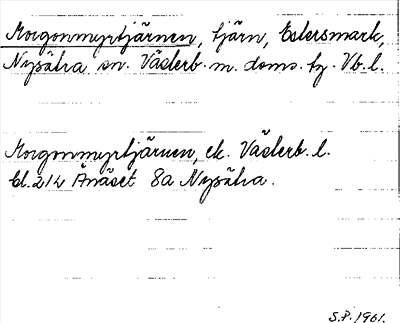 Morgonmyrtjärnen, tjärn, Estersmark,
Nysätra sn. Västerb. m. doms. fg. Vb. l.
Morgonmyrtjärnen, ek. Västerb. l.
bl. 212 Ånäset 8a Nysätra.
S.P. 1961.